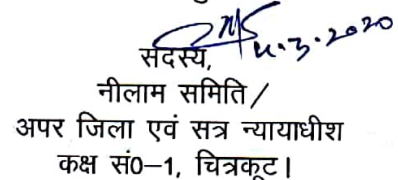 4.3.2020
सदस्य,
नीलाम समिति/
अपर जिला एवं सत्र न्यायाधीश
कक्ष सं0–1, चित्रकूट।